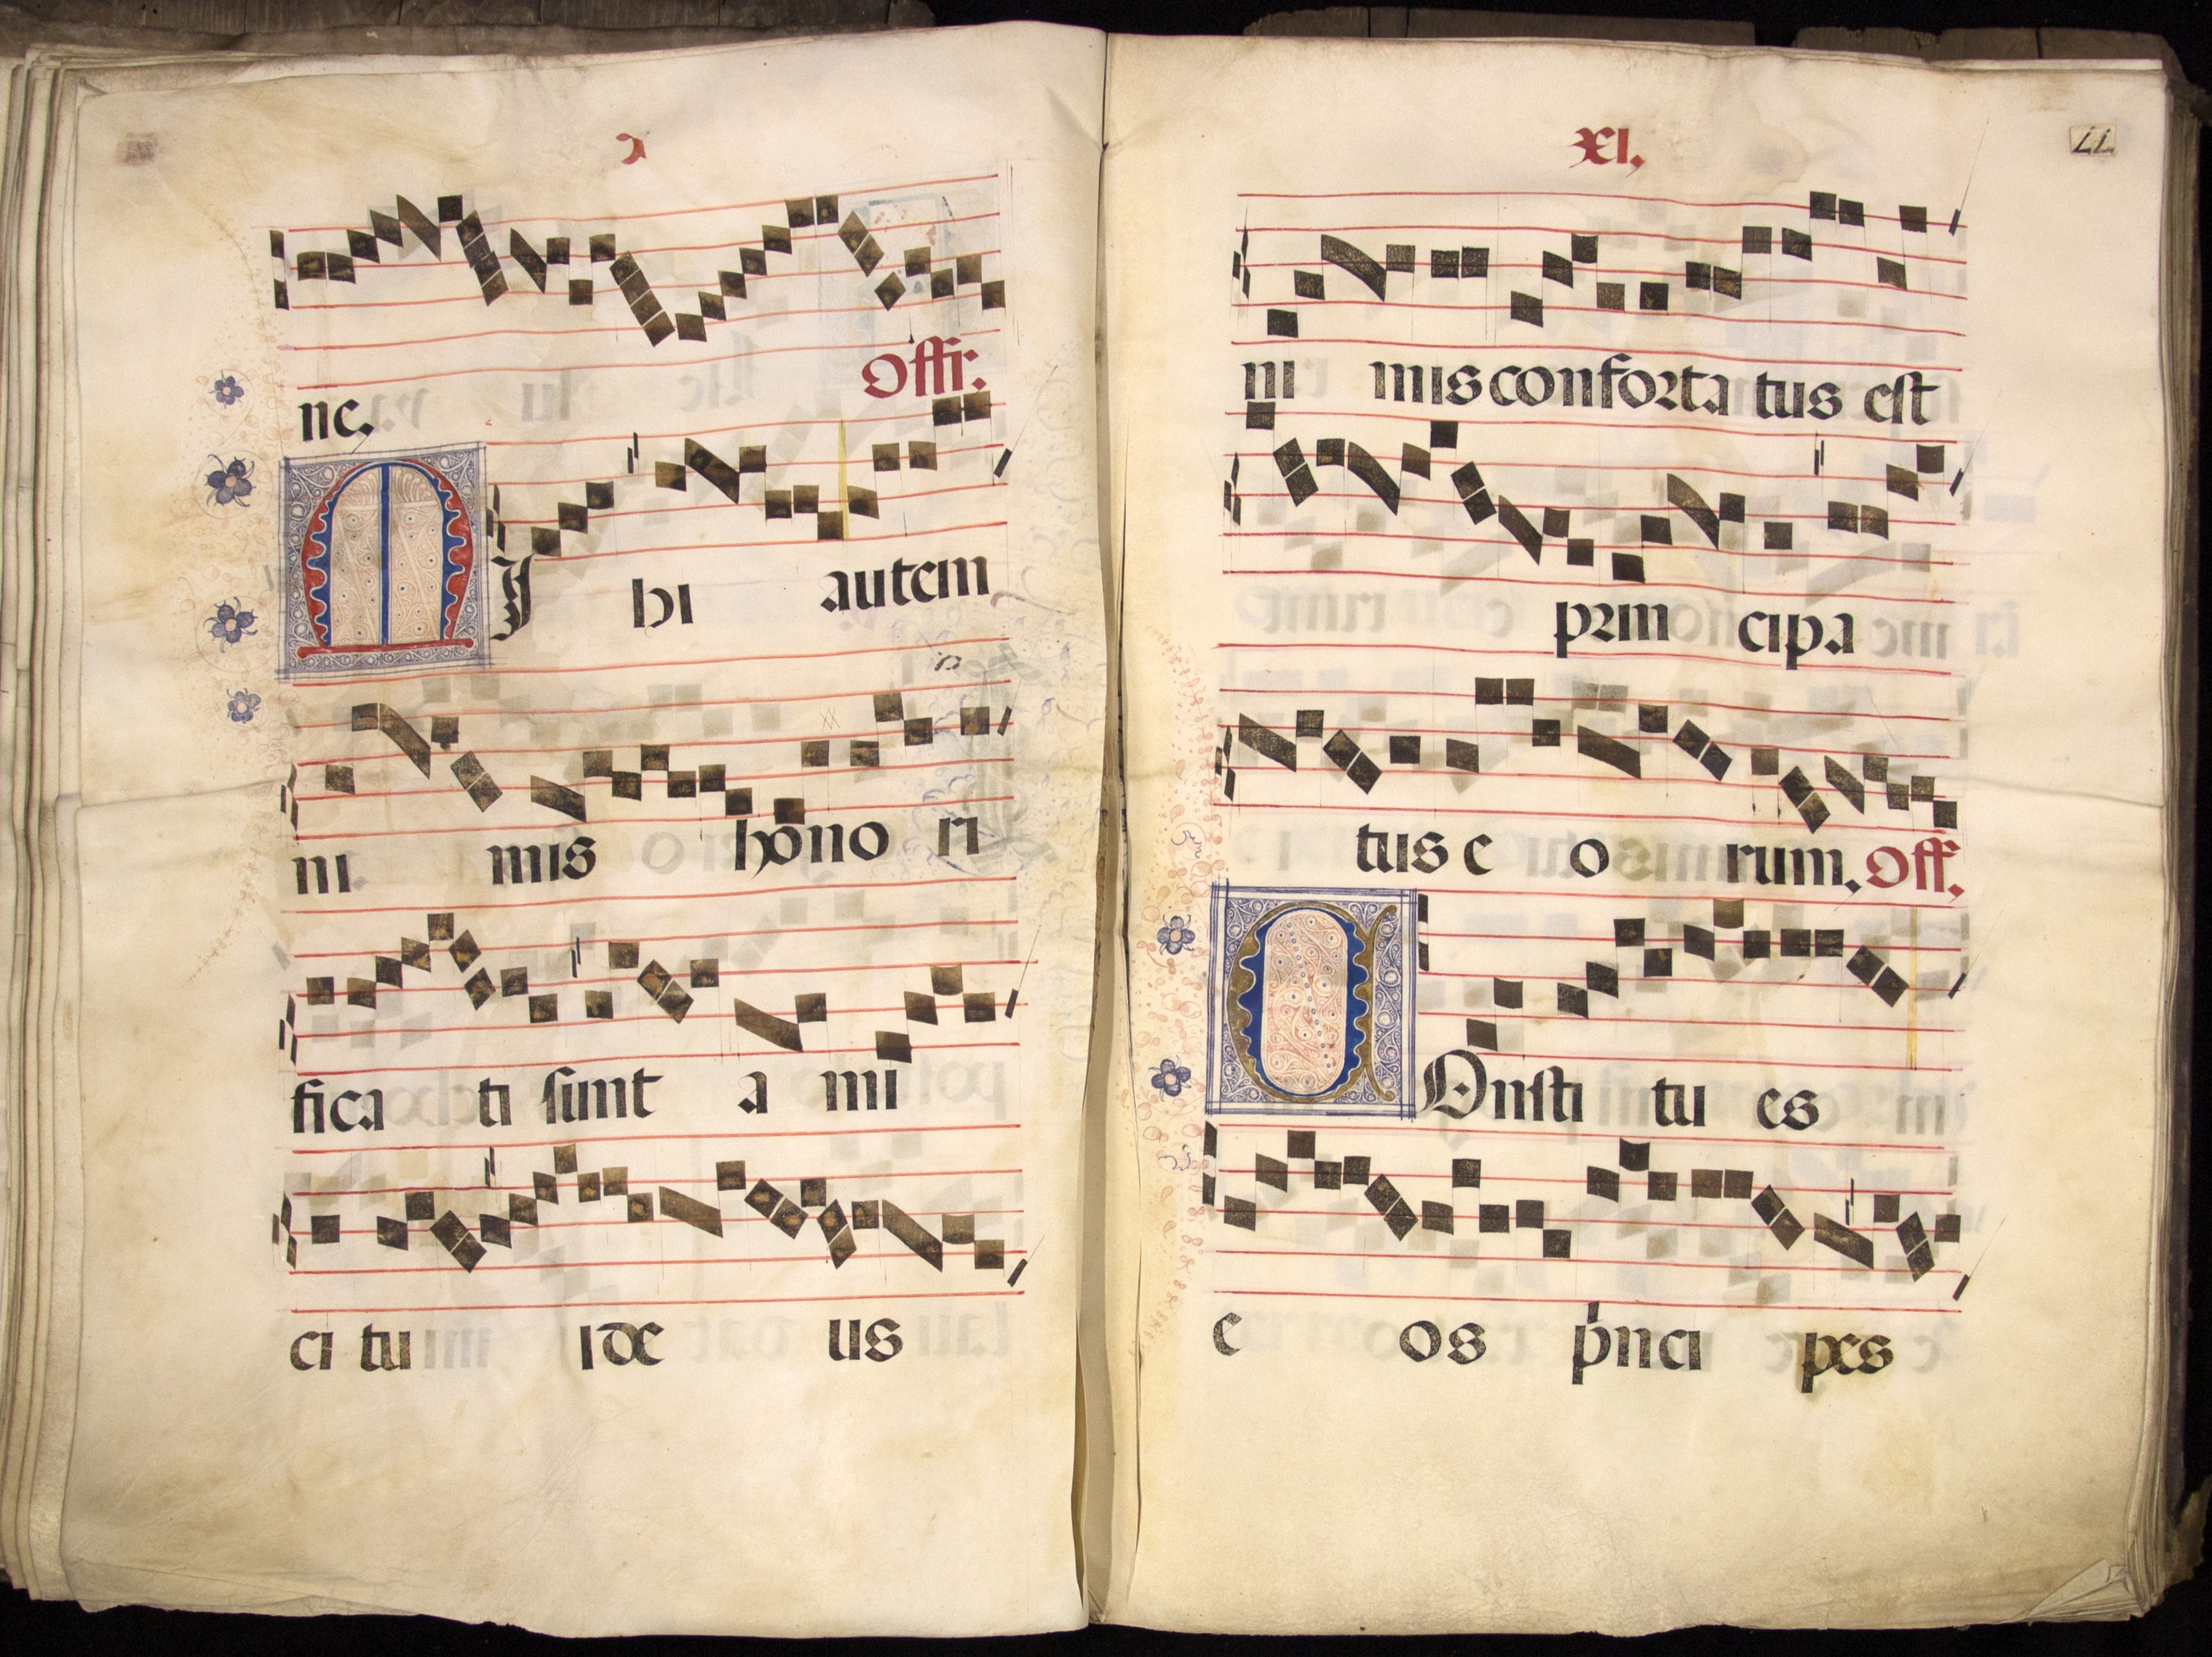 Offr.
ne.
MI hi autem
ni mis hono ri
fica ti sunt a mi
ci tu i de us
XI.
11
ni mis conforta tus est
prin cipa
tus e o rum. Off.
COnsti tu es
e os pnci pes